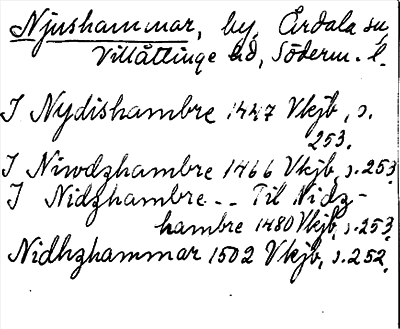 Njushammar, by, Årdala sn,
Villåttinge hd, Söderm. l.
I Nydishambre 1447 Vkjb, s.
253.
I Niwdzhambre 1466 Vkjb, s. 253.
I Nidzhambre -- Til Nidz-
hambre 1480 Vkjb, s. 253.
Nidhzhammar 1502 Vkjb, s. 252.